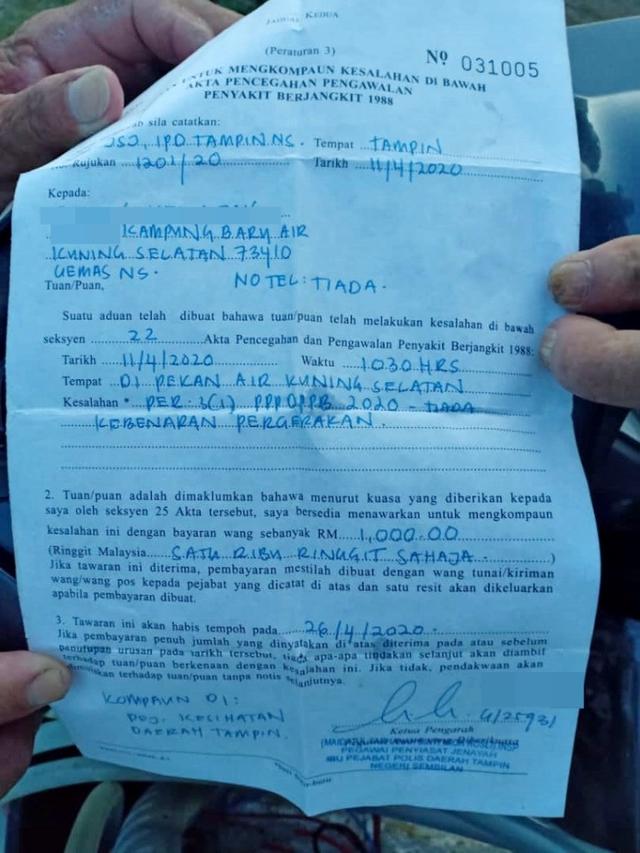 JADUAL KEDUA
(Peraturan 3)
Nº 031005
UNTUK MENGKOMPAUN KESALAHAN DI BAWAH
AKTA PENCEGAHAN PENGAWALAN
PENYAKIT BERJANGKIT 1988
sila catatkan:
IPD TAMPIN NS. Tempat TAMPIN
Rujukan 1201/20 Tarikh 11/4/2020
Kepada:
KAMPUNG BARU AIR
KUNING SELATAN 73410
GEMAS NS.
Tuan/Puan, NO TEL: TIADA.
Suatu aduan telah dibuat bahawa tuan/puan telah melakukan kesalahan di bawah
seksyen 22 Akta Pencegahan dan Pengawalan Penyakit Berjangkit 1988:
Tarikh 11/4/2020 Waktu 1030 HRS
Tempat DI PEKAN AIR KUNING SELATAN
Kesalahan * PER. 3(1) PPPDPPB 2020 - TIADA
KEBENARAN PERGERAKAN.
2. Tuan/puan adalah dimaklumkan bahawa menurut kuasa yang diberikan kepada
saya oleh seksyen 25 Akta tersebut, saya bersedia menawarkan untuk mengkompaun
kesalahan ini dengan bayaran wang sebanyak RM 1,000.00
(Ringgit Malaysia SATU RIBU RINGGIT SAHAJA.)
Jika tawaran ini diterima, pembayaran mestilah dibuat dengan wang tunai/kiriman
wang/wang pos kepada pejabat yang dicatat di atas dan satu resit akan dikeluarkan
apabila pembayaran dibuat.
3. Tawaran ini akan habis tempoh pada 26/4/2020.
Jika pembayaran penuh jumlah yang dinyatakan di atas diterima pada atau sebelum
penutupan urusan pada tarikh tersebut, tiada apa-apa tindakan selanjut akan diambil
terhadap tuan/puan berkenaan dengan kesalahan ini. Jika tidak, pendakwaan akan
terhadap tuan/puan tanpa notis selanjutnya.
KOMPAUN DI:
PEJ. KESIHATAN
DAERAH TAMPIN.
G/25931
Ketua Pengarah
PEGAWAI PENYIASAT JENAYAH
IBU PEJABAT POLIS DAERAH TAMPIN
NEGERI SEMBILAN